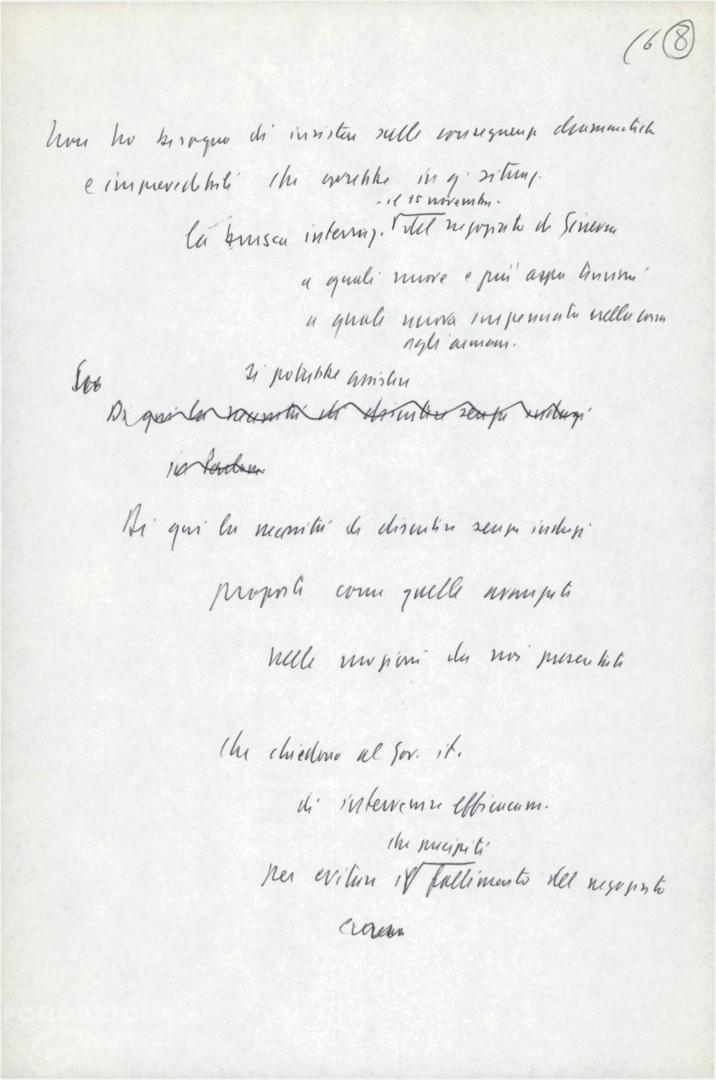 16 8
Non ho bisogno di insistere sulle conseguenze drammatiche
e imprevedibili che avrebbe in q. situaz.
- il 15 novembre -
la brusca interruz. del negoziato di Ginevra
a quali nuove e più aspre tensioni
a quale nuova impennata nella corsa
agli armam.
si potrebbe assistere
Di qui la necessità di discutere senza indugi
in
Di qui la necessità di discutere senza indugi
proposte come quelle avanzate
nelle mozioni da noi presentate
che chiedono al Gov. it.
di intervenire efficacem.
che precipiti
per evitare il fallimento del negoziato
FONDAZIONE